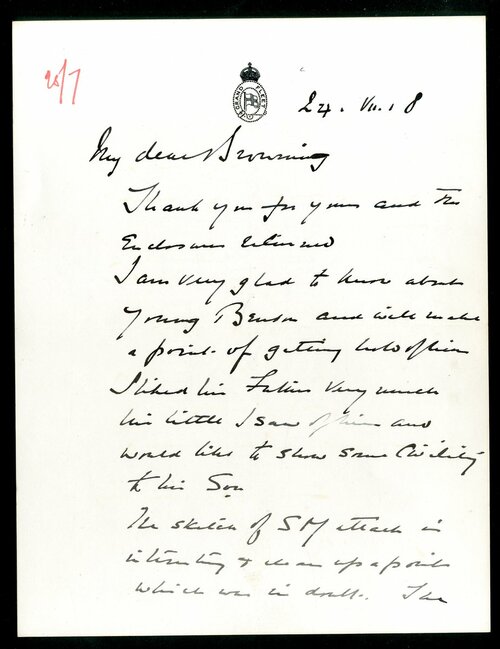 25/7
GRAND FLEET
24. VII. 18
My dear Browning
Thank you for yours and the
Enclosures returned
I am very glad to know about
young Benson and will make
a point of getting hold of him
I liked his Father very much
the little I saw of him and
would like to show some Civility
to his Son
The sketch of S M attack is
interesting & clears up a point
which was in doubt. I am